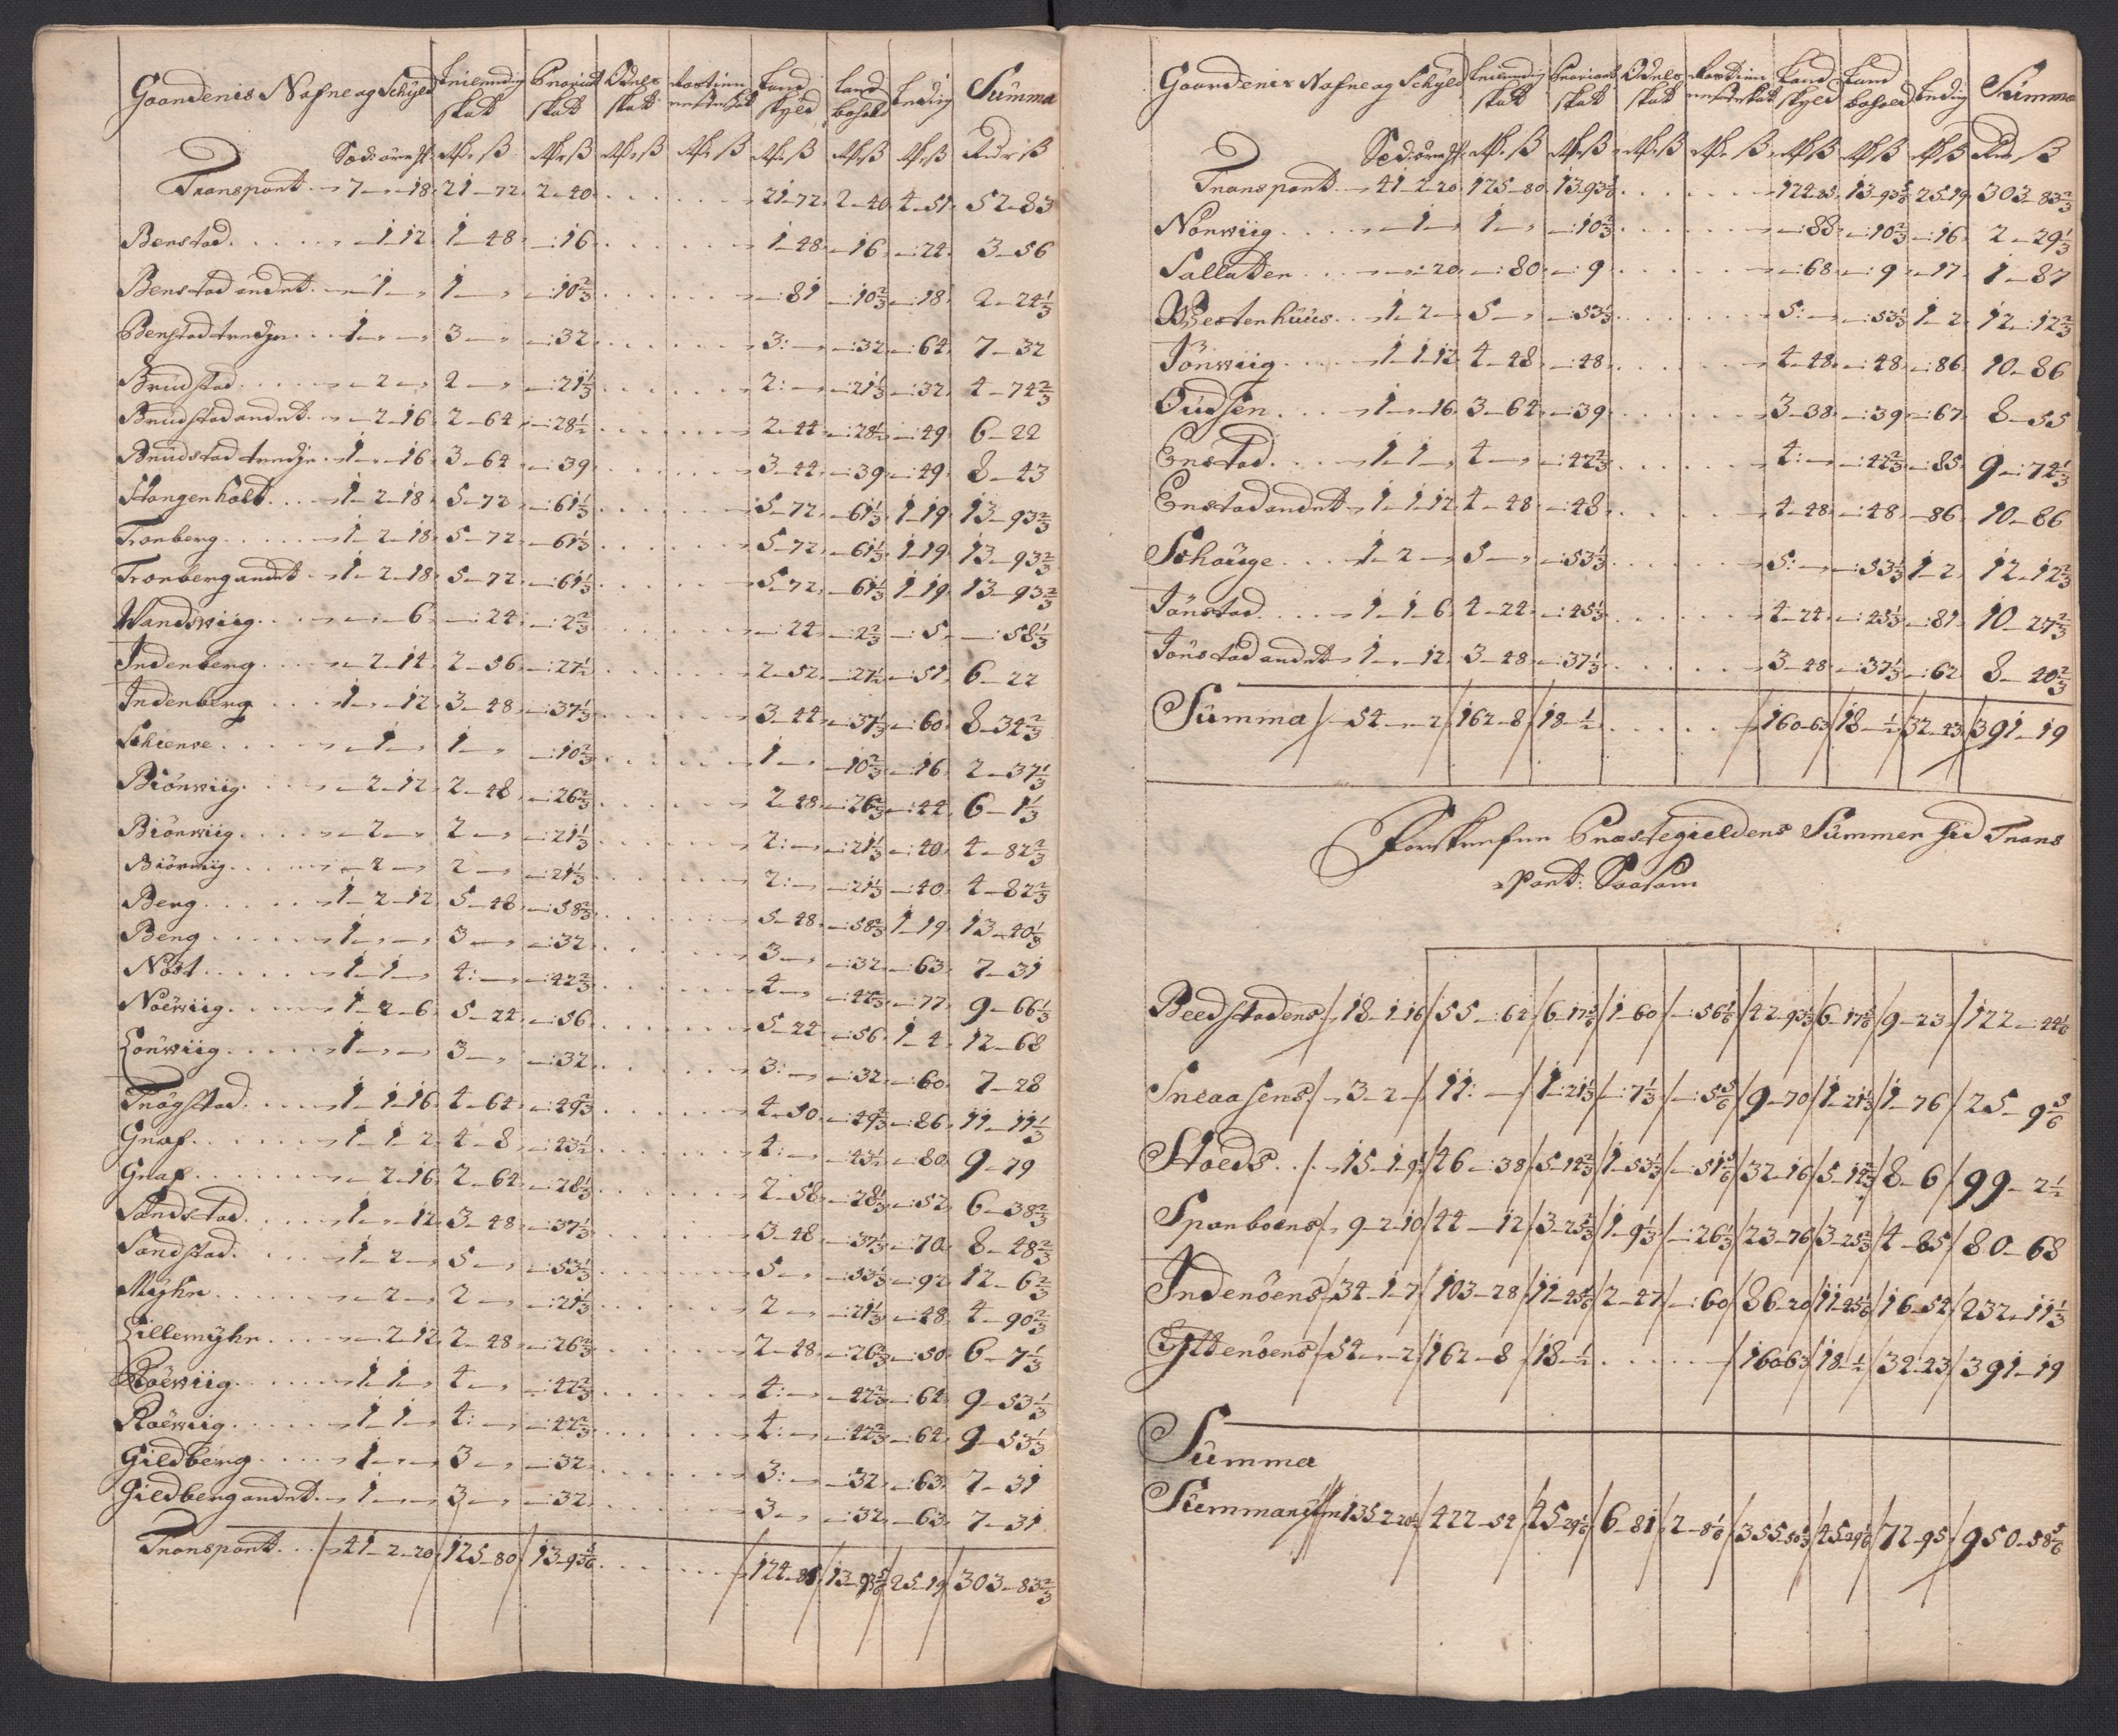 Gaardenis Nafne og Schyld Leilending skatt Proviant skatt Odels skatt Land skyld Land bohold Leding Summa
Transport 7 – 18 21–72 2–40 21–72 2–40 4–51 52–83
Benstad 1 12 1–48 –:16 1–48 –16 –:24 3–56
Benstad andet 1 1 –:10 2/3 –:81 –:10 2/3 –:18 2–24 1/3
Benstad tredje 1 3 –:32 3:– –:32 –:64 7–32
Brudstad 2 2 –:21 1/3 2:– –:21 1/3 –:32 4–74 2/3
Brudstad andet 2–16 2–64 –:28 1/2 2–44 –:28 1/2 –:49 6–22
Brudstad tredje 1 – 16 3–64 –:39 3–44 –:39 –:49 8–43
Stangenholt 1–2–18 5–72 –:61 1/3 5–72 –61 1/3 1–19 13–93 2/3
Tronberg 1–2–18 5–72 –61 1/3 5–72 –:61 1/3 1–19 13–93 2/3
Tronberg andet 1–2–18 5–72 –:61 1/3 5–72 –61 1/3 1–19 13–93 2/3
Wandswiig 6 –:24 –:2 2/3 –:24 –:2 2/3 –:5 –:58 1/3
Inderberg 2–14 2–56 –:27 1/2 2–52 –27 1/2 –:51 6–22
Inderberg 1 – 12 3–48 –:37 1/3 3–44 –:37 1/3 –:60 8–34 2/3
Schierwe 1 1 –:10 2/3 1 –10 2/3 –:16 2–37 1/3
Biörwiig 2–12 2–48 –:26 2/3 2–48 –:26 2/3 –:44 6–1 1/3
Biörwiig 2 2 –:21 1/3 2:– –:21 1/3 –:40 4–82 2/3
Biörwiig 2 2 –:21 1/3 2:– –:21 1/3 –:40 4–82 2/3
Berg 1–2–12 5–48 –:58 2/3 5–48 –:58 2/3 1–19 13–40 1/3
Berg 1 3 –:32 3 –:32 –:63 7–31
Nöst 1–1 4:– –:42 2/3 4 –:42 2/3 –:77 9–66 1/3
Noëwiig 1–2–6 5–24 –:56 5–24 –:56 1–4 12–68
Lörwiig 1 3 –:32 3:– –:32 –:60 7–28
Trögstad 1–1–16 4–64 –:49 2/3 4–50 –:49 2/3 –:86 11–11 1/3
Graf 1–1–2 4–8 –:43 1/2 4:– –:43 1/2 –:80 9–79
Graf 2–16 2–64 –:28 1/3 2–58 –:28 1/3 –:52 6–38 2/3
Sandstad 1 – 12 3–48 –:37 1/3 3–48 –:37 1/3 –:70 8–48 2/3
Sandstad 1–2 5 –:53 1/3 5 –:53 1/3 –:92 12–6 2/3
Myhre 2 2 –:21 1/3 2 –:21 1/3 –:48 4–90 2/3
Lillemyhr 2–12 2–48 –:26 2/3 2–48 –:26 2/3 –:50 6–7 1/3
Roëwiig 1–1 4 –:42 2/3 4:– –:42 2/3 –:64 9–53 1/3
Roëwiig 1–1 4:– –:42 2/3 4:– –:42 2/3 –:64 9–53 1/3
Gildberg 1 3 –:32 3:– –:32 –:63 7–31
Gildberg andet 1 3 –:32 3 –:32 –:63 7–31
Transport 41–2–20 125–80 13–93 5/6 124–85 13–93 5/6 25–19 303–83 2/3
Gaardenis Nafne og Schyld Leilending skatt Proviant skatt Odels skatt Land skyld Land bohold Leding Summa
Transport 41–2–20 125–80 13–93 5/6 124–85 13–93 5/6 25–19 303–83 2/3
Norwiig 1 1 –:10 2/3 –:88 –:10 2/3 –:16 2–29 1/3
Salltten 20 –:80 –:9 –:68 –:9 –17 1–87
Westerhuus 1–2 5 –:53 1/3 5:– –:53 1/3 1–2 12–12 2/3
Jörwiig 1–1–12 4–48 –:48 4–48 –:48 –:86 10–86
Oudsen 1 – 16 3–64 –:39 3–38 –:39 –:67 8–55
Enstad 1–1 4 –:42 2/3 4:– –:42 2/3 –:85 9–:74 1/3
Enstad andet 1–1–12 4–48 –:48 4–48 –:48 –86 10–86
Schouge 1–2 5 –:53 1/3 5:– –:53 1/3 1–2 12–12 2/3
Jönstad 1–1–6 4–24 –:45 1/3 4–24 –:45 1/3 –:81 10–27 2/3
Jönstad andet 1 – 12 3–48 –:37 1/3 3–48 –:37 1/3 –:62 8–40 2/3
Summa 54 – 2 162–8 18–1/2 160–63 18–1/2 32–43 391–19
Forskrefne Præstegieldens Summer hid Trans
port: Saasom
Beedstadens 18–1–16 55–:64 6–17 5/6 1–60 –:56 1/6 42–93 1/3 6–17 5/6 9–23 122–:44 1/6
Sneaasens 3–2 11:– 1–21 1/3 –:7 1/3 –:5 5/6 9–70 1–21 1/3 1–76 25–9 5/6
Stoeds 15–1–9 1/2 46–:38 5–14 2/3 1–53 1/3 –:51 5/6 32–16 5–14 2/3 8–6 99–2 1/2
Sparboens 9–2–10 44–12 3–25 2/3 1–9 1/3 –:26 1/3 23–76 3–25 2/3 4–85 80–68
Inderöens 34–1–7 103–28 11–45 1/6 2–47 –:60 86–20 11–45 1/6 16–54 232–11 1/3
Ytteröens 54 – 2 162–8 18–1/2 160–63 18–1/2 32–43 391–19
Summa
Summarum 135–2–20 1/2 422–54 45–29 1/6 6–81 2–8 1/6 355–50 1/3 45–29 1/6 72–95 950–58 5/6